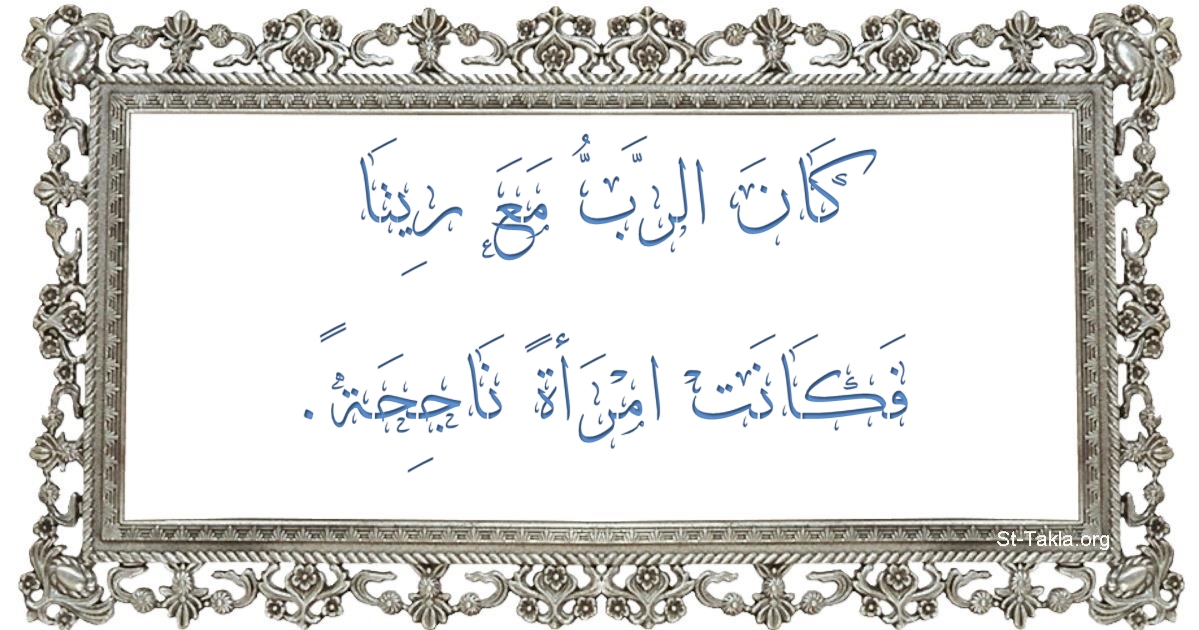 كَانَ الرَّبُّ مَعَ رِينَا
فَكَانَتْ امْرَأةً نَاجِحَةً.
St-Takla.org